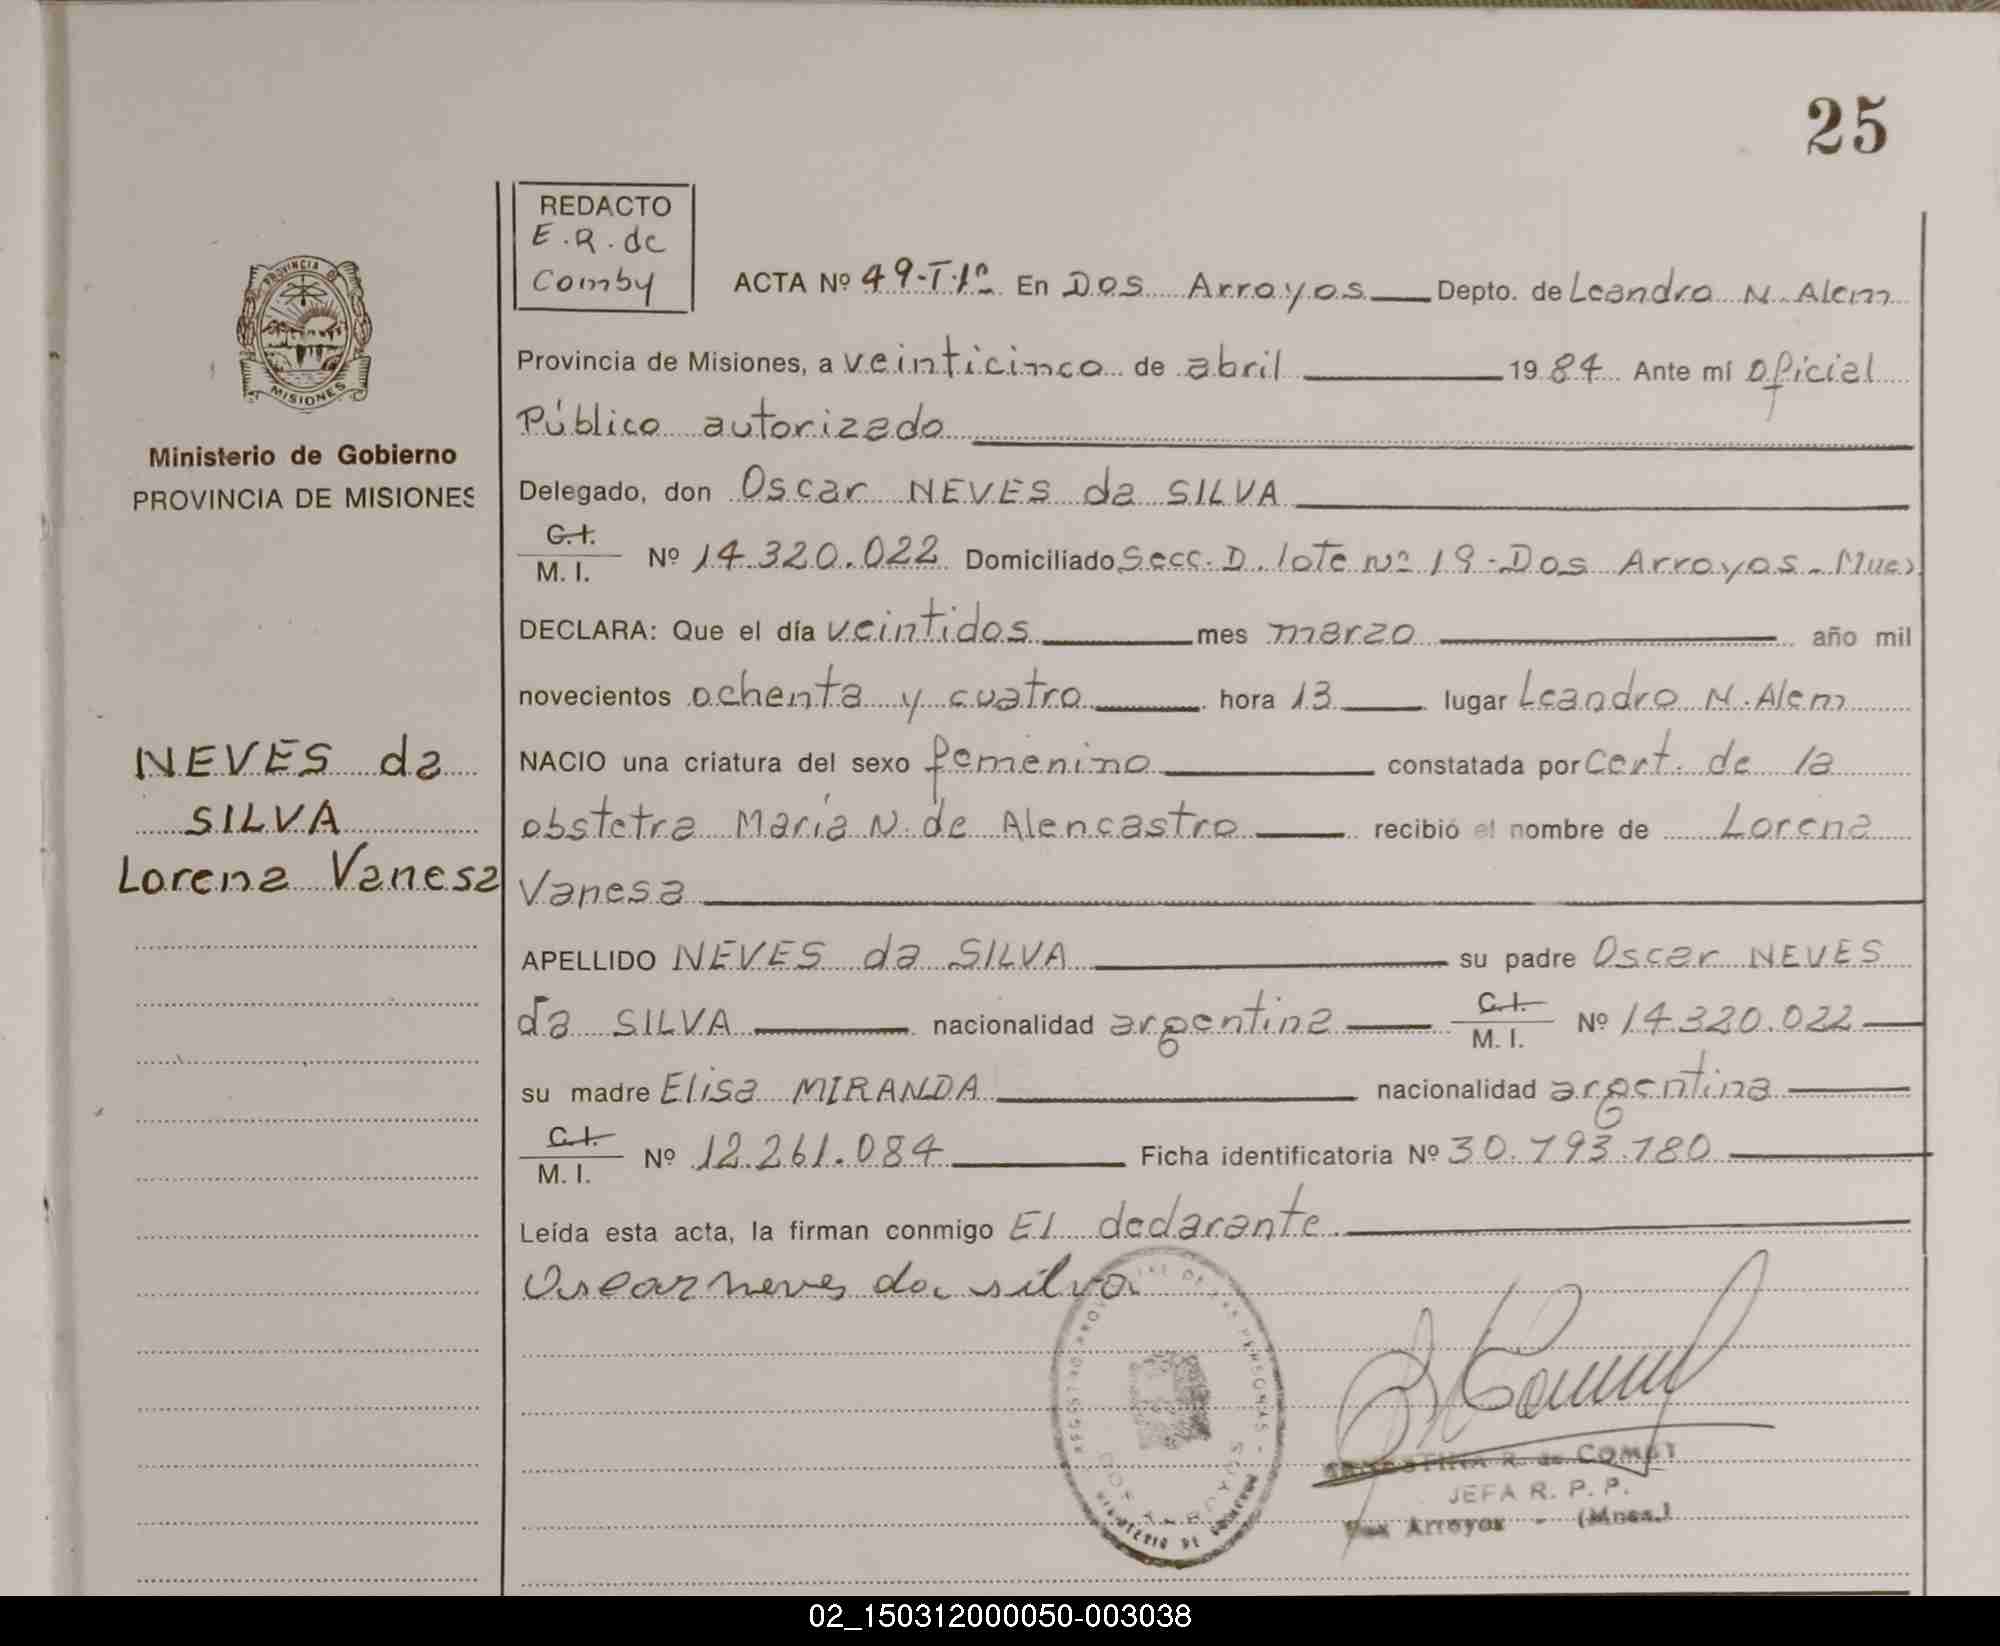 25
REDACTO
E.R. de
Comby
PROVINCIA DE
MISIONES
Ministerio de Gobierno
PROVINCIA DE MISIONES
NEVES da
SILVA
Lorena Vanesa
ACTA Nº 49-T.1º En Dos Arroyos Depto. de Leandro N. Alem
Provincia de Misiones, a veinticinco de abril 1984 Ante mí oficial
Público autorizado
Delegado, don Oscar NEVES da SILVA
C.I.
M. I. Nº 14.320.022 Domiciliado Secc. D. lote nº 19-Dos Arroyos-
DECLARA: Que el día veintidos mes marzo año mil
novecientos ochenta y cuatro hora 13 lugar Leandro N. Alem
NACIO una criatura del sexo femenino constatada por Cert. de la
obstetra María N. de Alencastro recibió el nombre de Lorena
Vanesa
APELLIDO NEVES da SILVA su padre Oscar NEVES
da SILVA nacionalidad argentina C.I. M. I. Nº 14.320.022
su madre Elisa MIRANDA nacionalidad argentina
C.I.
M. I. Nº 12.261.084 Ficha identificatoria Nº 30.793.780
Leída esta acta, la firman conmigo El declarante
Oscar neves da silva
R. de COMBY
JEFA R. P. P.
Dos Arroyos - (Mnes.)
02_150312000050-003038